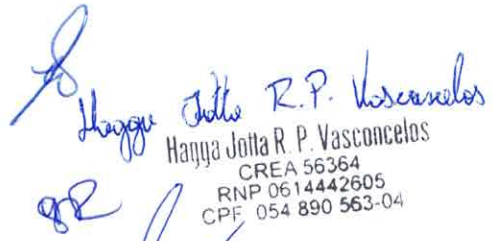 Hagga Jotta R.P. Vasconcelos
Hagga Jotta R. P. Vasconcelos
CREA 56364
RNP 0614442605
CPF 054 890 563-04